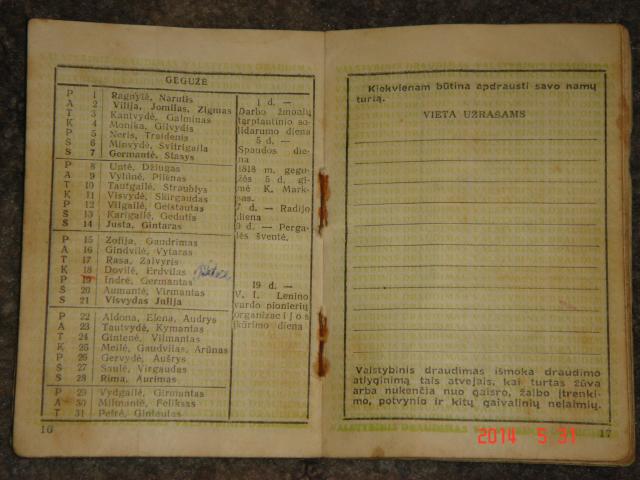 VALSTYBINIS DRAUDIMAS
GEGUŽĖ
P 1 Ragnylė, Narutis
A 2 Vilija, Jomilas, Zigmas
T 3 Kantvydė, Galminas
K 4 Monika, Gilvydis
P 5 Neris, Traidenis
S 6 Minvydė, Švitrigaila
S 7 Germantė, Stasys
P 8 Untė, Džiugas
A 9 Vyliūnė, Pilėnas
T 10 Tautgailė, Straublys
K 11 Visvydė, Skirgaudas
P 12 Vilgailė, Geistautas
Š 13 Karigailė, Gedutis
S 14 Justa, Gintaras
P 15 Zofija, Gaudrimas
A 16 Gindvilė, Vytaras
T 17 Rasa, Zalvyris
K 18 Dovilė, Erdvilas
P 19 Indrė, Germantas
Š 20 Aumantė, Virmantas
S 21 Visvydas, Julija
P 22 Aldona, Elena, Audrys
A 23 Tautvydė, Kymantas
T 24 Gintenė, Vilmantas
K 25 Meilė, Gaudvilas, Arūnas
P 26 Gervydė, Aušrys
Š 27 Saulė, Virgaudas
S 28 Rima, Aurimas
P 29 Vydgailė, Girmantas
A 30 Milmantė, Feliksas
T 31 Petrė, Gintautas
1 d. —
Darbo žmonių
tarptautinio so-
lidarumo diena
5 d. —
Spaudos die-
na
1818 m. gegu-
žės 5 d. gi-
mė K. Mark-
sas.
7 d. — Radijo
diena
9 d. — Perga-
lės šventė.
19 d. —
V. I. Lenino
vardo pionierių
organizacijos
įkūrimo diena
16
Kiekvienam būtina apdrausti savo namų
turtą.
VIETA UŽRAŠAMS
Valstybinis draudimas išmoka draudimo
atlyginimą tais atvejais, kai turtas žūva
arba nukenčia nuo gaisro, žaibo įtrenki-
mo, potvynio ir kitų gaivalinių nelaimių.
VALSTYBINIS DRAUDIMAS
17
2014 5.31